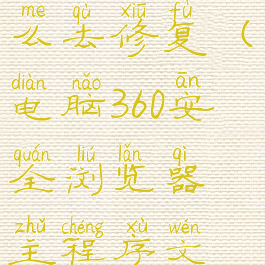 me qù xiū fù
么去修复（
diàn nǎo ān
电脑360安
quán liú lǎn qì
全浏览器
zhǔ chéng xù wén
主程序文